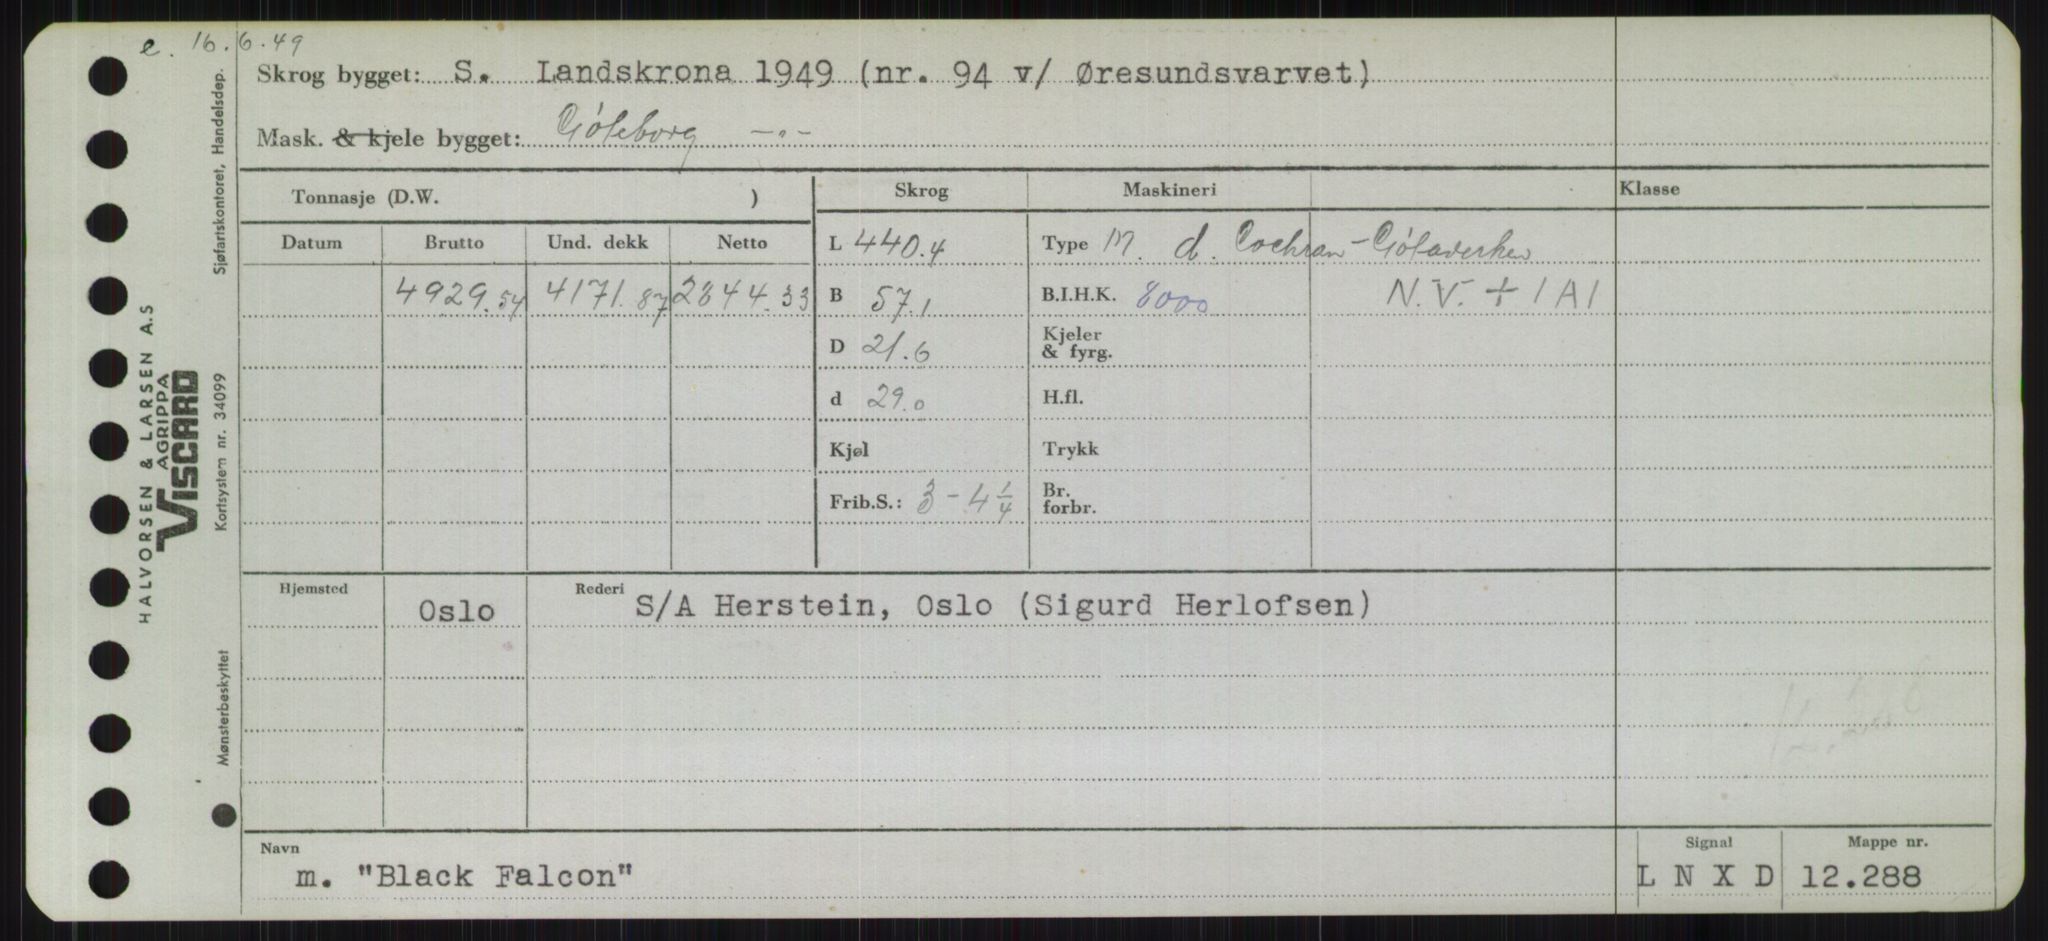 e. 16.6.49
Skrog bygget: S. Landskrona 1949 (nr. 94 v/ Øresundsvarvet)
Mask. & kjele bygget: Göteborg -"-
Tonnasje (D.W. )
Skrog
Maskineri
Klasse
Datum
Brutto
Und. dekk
Netto
4929.54
4171.87
2844.33
L 440.4
B 57.1
D 21.6
d 29.0
Kjøl
Frib.S.: 3 - 4 1/4
Type M. d. Cochran - Götaverken
B.I.H.K. 8000
N.V. + 1A1
Kjeler
& fyrg.
H.fl.
Trykk
Br.
forbr.
Hjemsted
Oslo
Rederi
S/A Herstein, Oslo (Sigurd Herlofsen)
Navn
m. "Black Falcon"
Signal
L N X D
Mappe nr.
12.288
HALVORSEN & LARSEN A.S
AGRIPPA
VISCARD
Sjøfartskontoret, Handelsdep.
Kortsystem nr. 34099
Mønsterbeskyttet